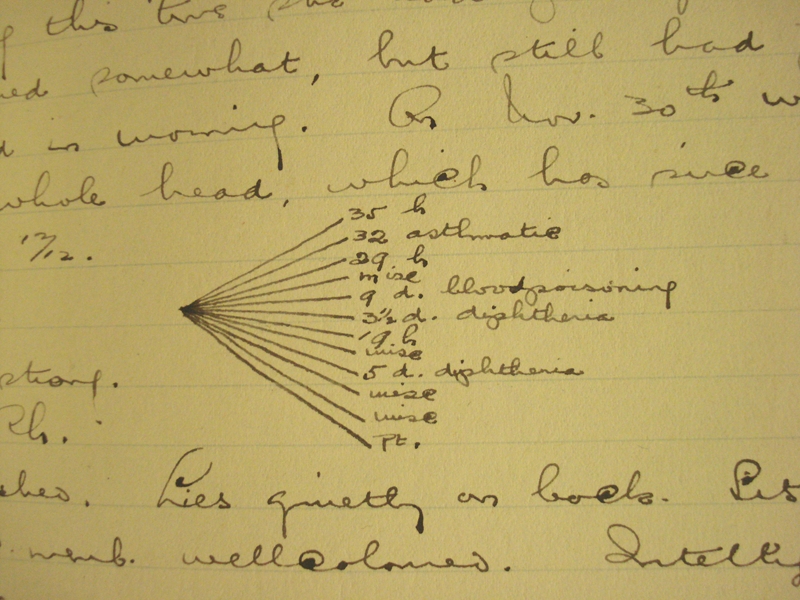 this time she
somewhat, but still had
in morning. On Nov. 30th
whole head, which has since
12/12.
35 h
32 asthmatic
29 h
misc
9 d. bloodpoisoning
3½ d. diphtheria
19 h
misc
5 d. diphtheria
misc
misc
Pt.
strong.
Rh.
Lies quietly on back.
memb. wellcoloured.